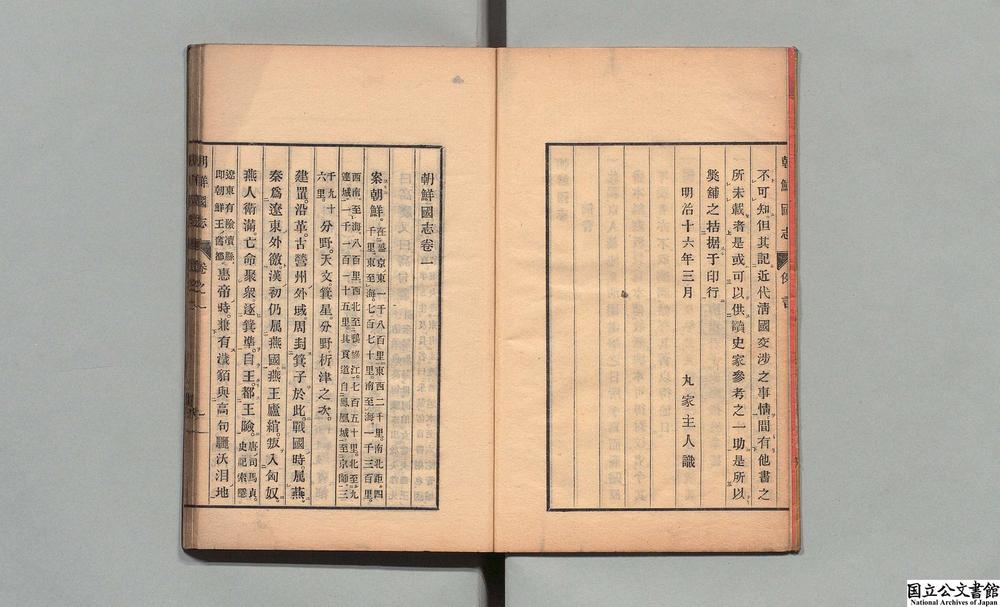 不可知但其記近代淸國交涉之事情間有他書之
所未載者是或可以供讀史家參考之一助是所以
弊舖之拮据于印行
明治十六年三月
丸家主人識
朝鮮國志
朝鮮國志卷一
案朝鮮。在盛京東一千八百里東西二千里。南北距四
千里。東至海七百七十里。南至海一千三百里。
西南至海八百里西北至鴨綠江。七百五十里。北至九
連城一千一百一十五里。其貢道自鳳凰城至京師三
千九十
六里。分野。天文箕星分野析津之次。
建置沿革。古營州外域周封箕子於此。戰國時屬燕。
秦爲遼東外徼。漢初仍屬燕國燕王盧綰。叛入匈奴。
燕人衛滿。亡命聚衆逐箕準。自王。都王險。唐司馬貞。
史記索隱
遼東有險瀆縣。
即朝鮮王舊都。惠帝時。兼有濊貊與高句驪沃沮地
朝鮮國志
國立公文書館
National Archives of Japan